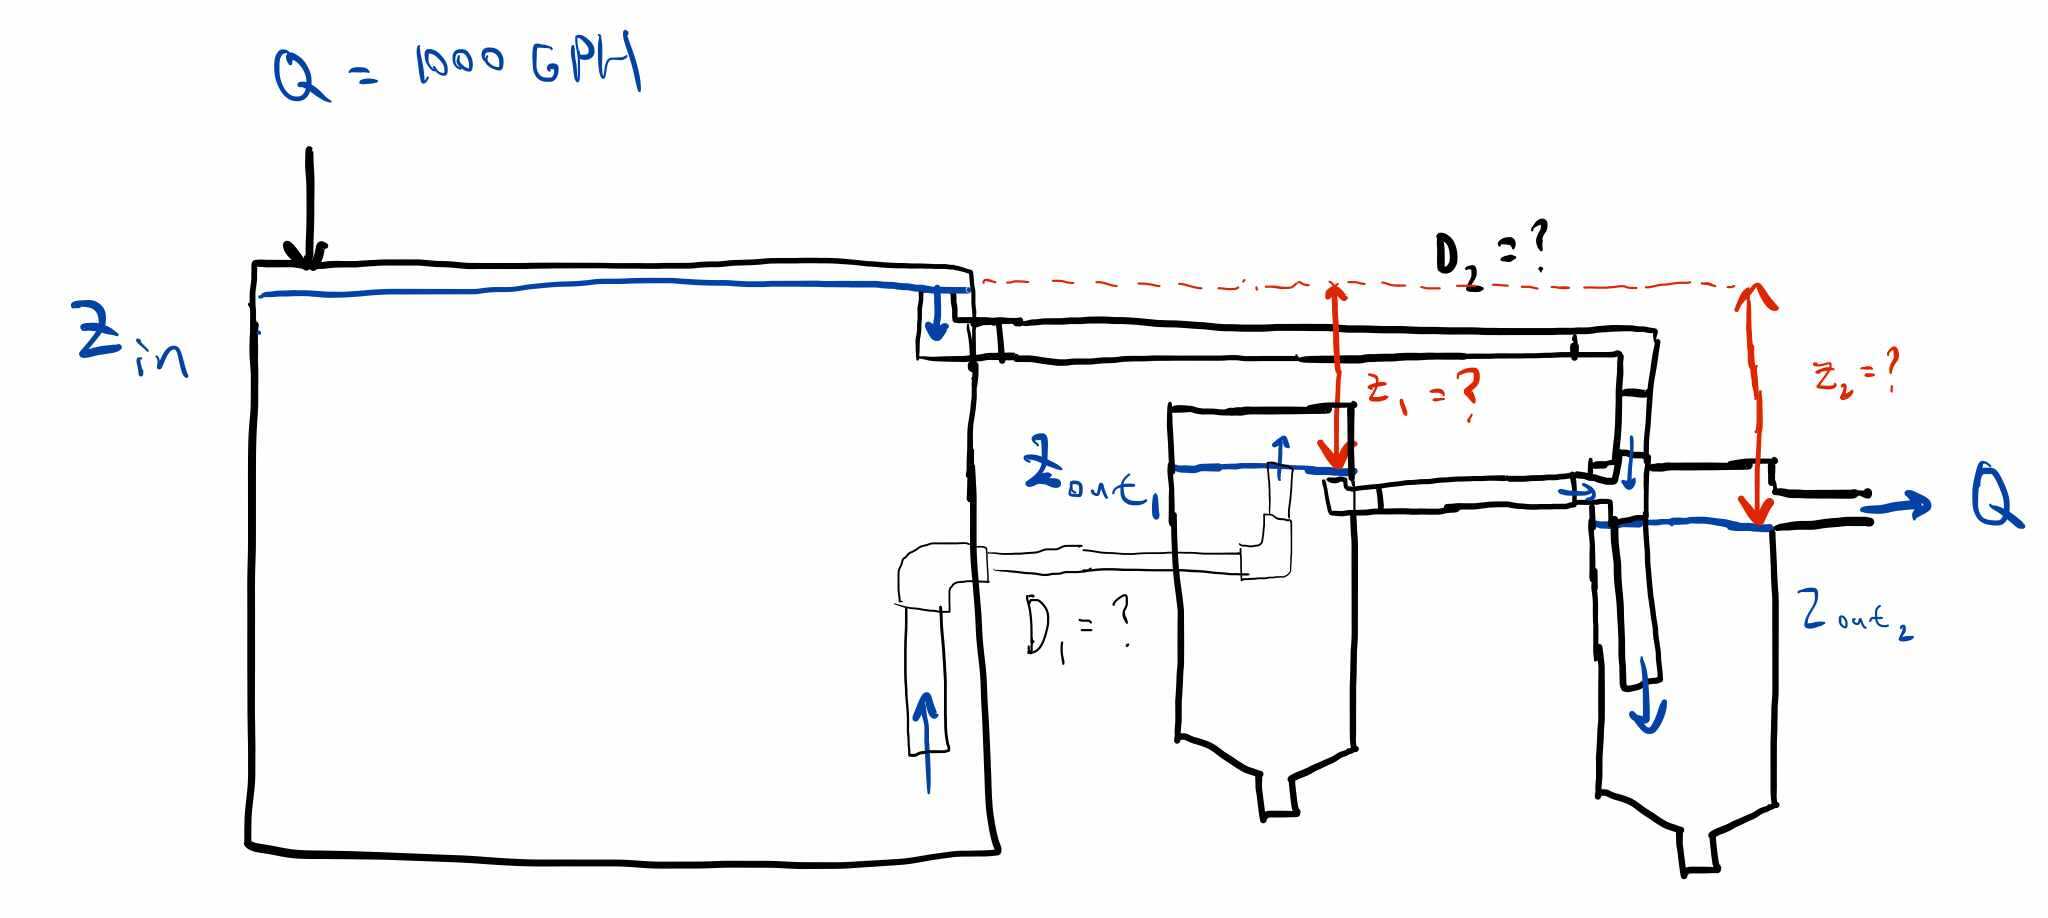 Q = 1000 GPH
D₂ = ?
Z in
z₁ = ?
z₂ = ?
Z out₁
Q
D₁ = ?
Z out₂